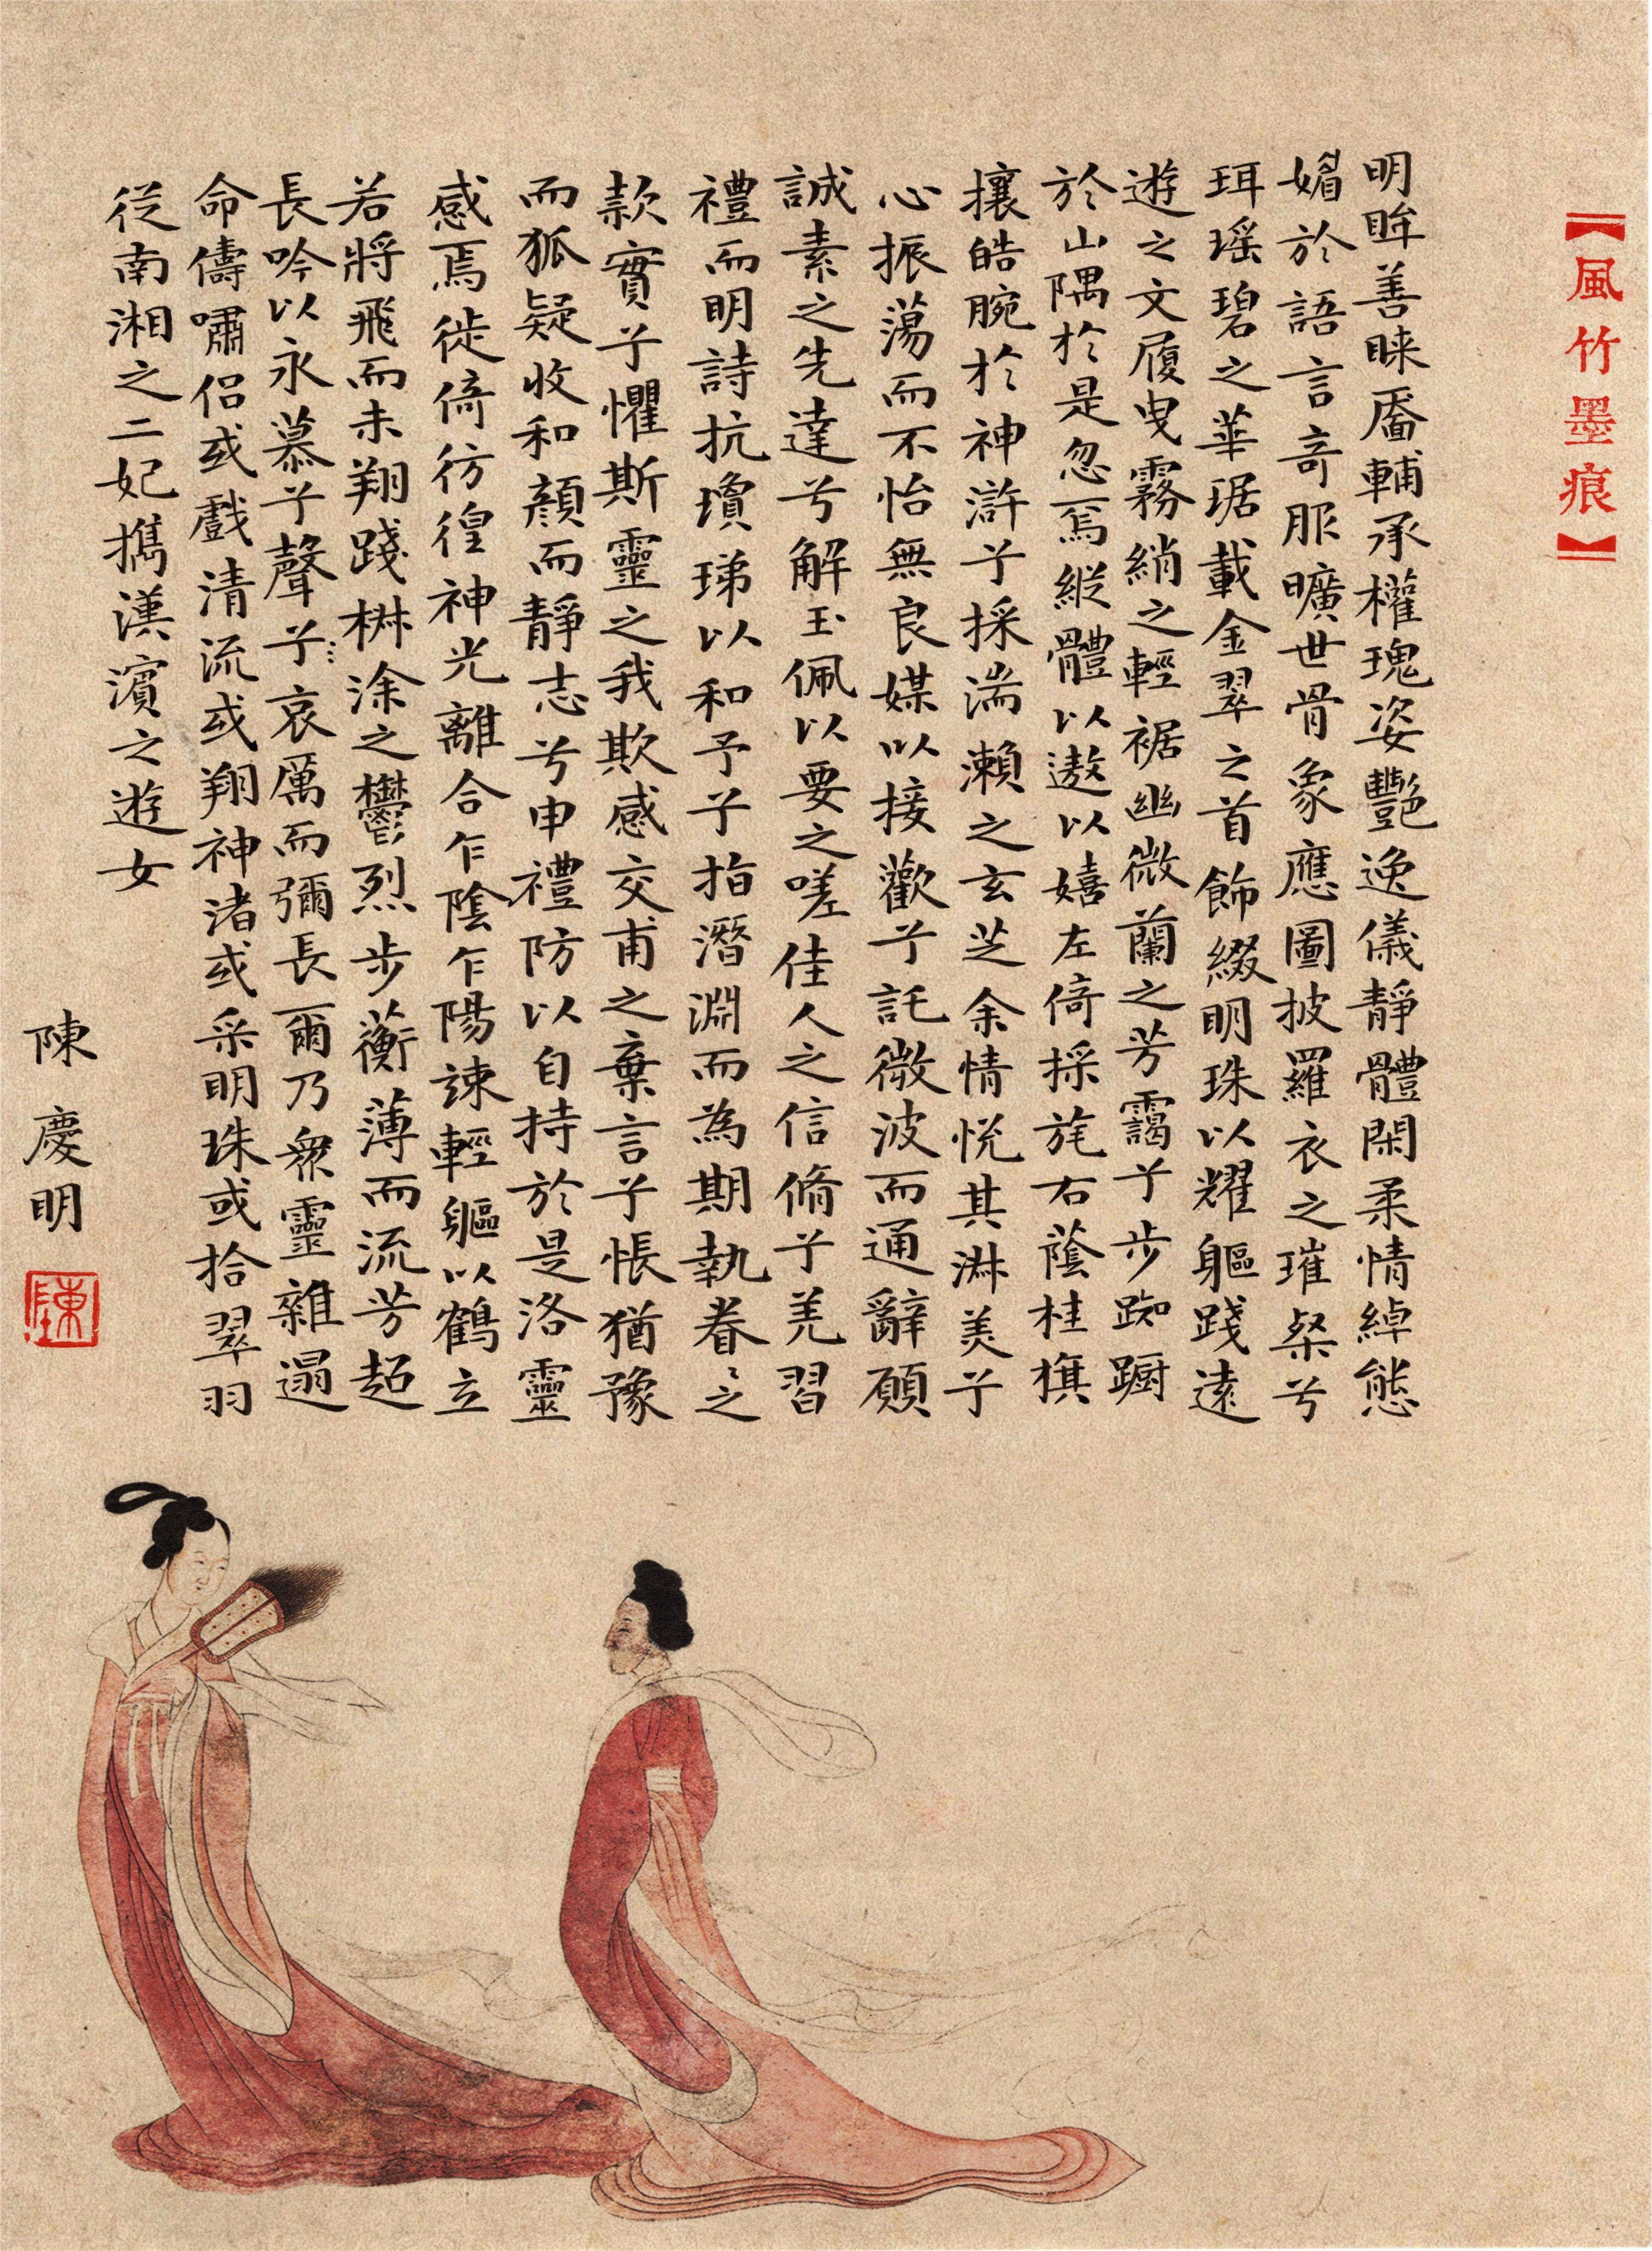 【風竹墨痕】
明眸善睞靨輔承權瑰姿艷逸儀靜體閑柔情綽態
媚於語言奇服曠世骨象應圖披羅衣之璀粲兮
珥瑶碧之華琚載金翠之首飾綴明珠以耀軀踐遠
遊之文履曳霧綃之輕裾幽微蘭之芳靄兮步踟蹰
於山隅於是忽焉縱體以遨以嬉左倚採旄右蔭桂旗
攘皓腕於神滸兮採湍瀨之玄芝余情悅其淋美兮
心振蕩而不怡無良媒以接歡兮託微波而通辭願
誠素之先達兮解玉佩以要之嗟佳人之信脩兮羌習
禮而明詩抗瓊珶以和予兮指潛淵而為期執眷〻之
款實兮懼斯靈之我欺感交甫之棄言兮悵猶豫
而狐疑收和顏而靜志兮申禮防以自持於是洛靈
感焉徙倚彷徨神光離合乍陰乍陽竦輕軀以鶴立
若將飛而未翔踐椒涂之鬱烈步蘅薄而流芳超
長吟以永慕兮聲兮哀厲而彌長爾乃眾靈雜遢
命儔嘯侶或戲清流或翔神渚或采明珠或拾翠羽
從南湘之二妃攜漢濱之遊女
陳慶明
陳